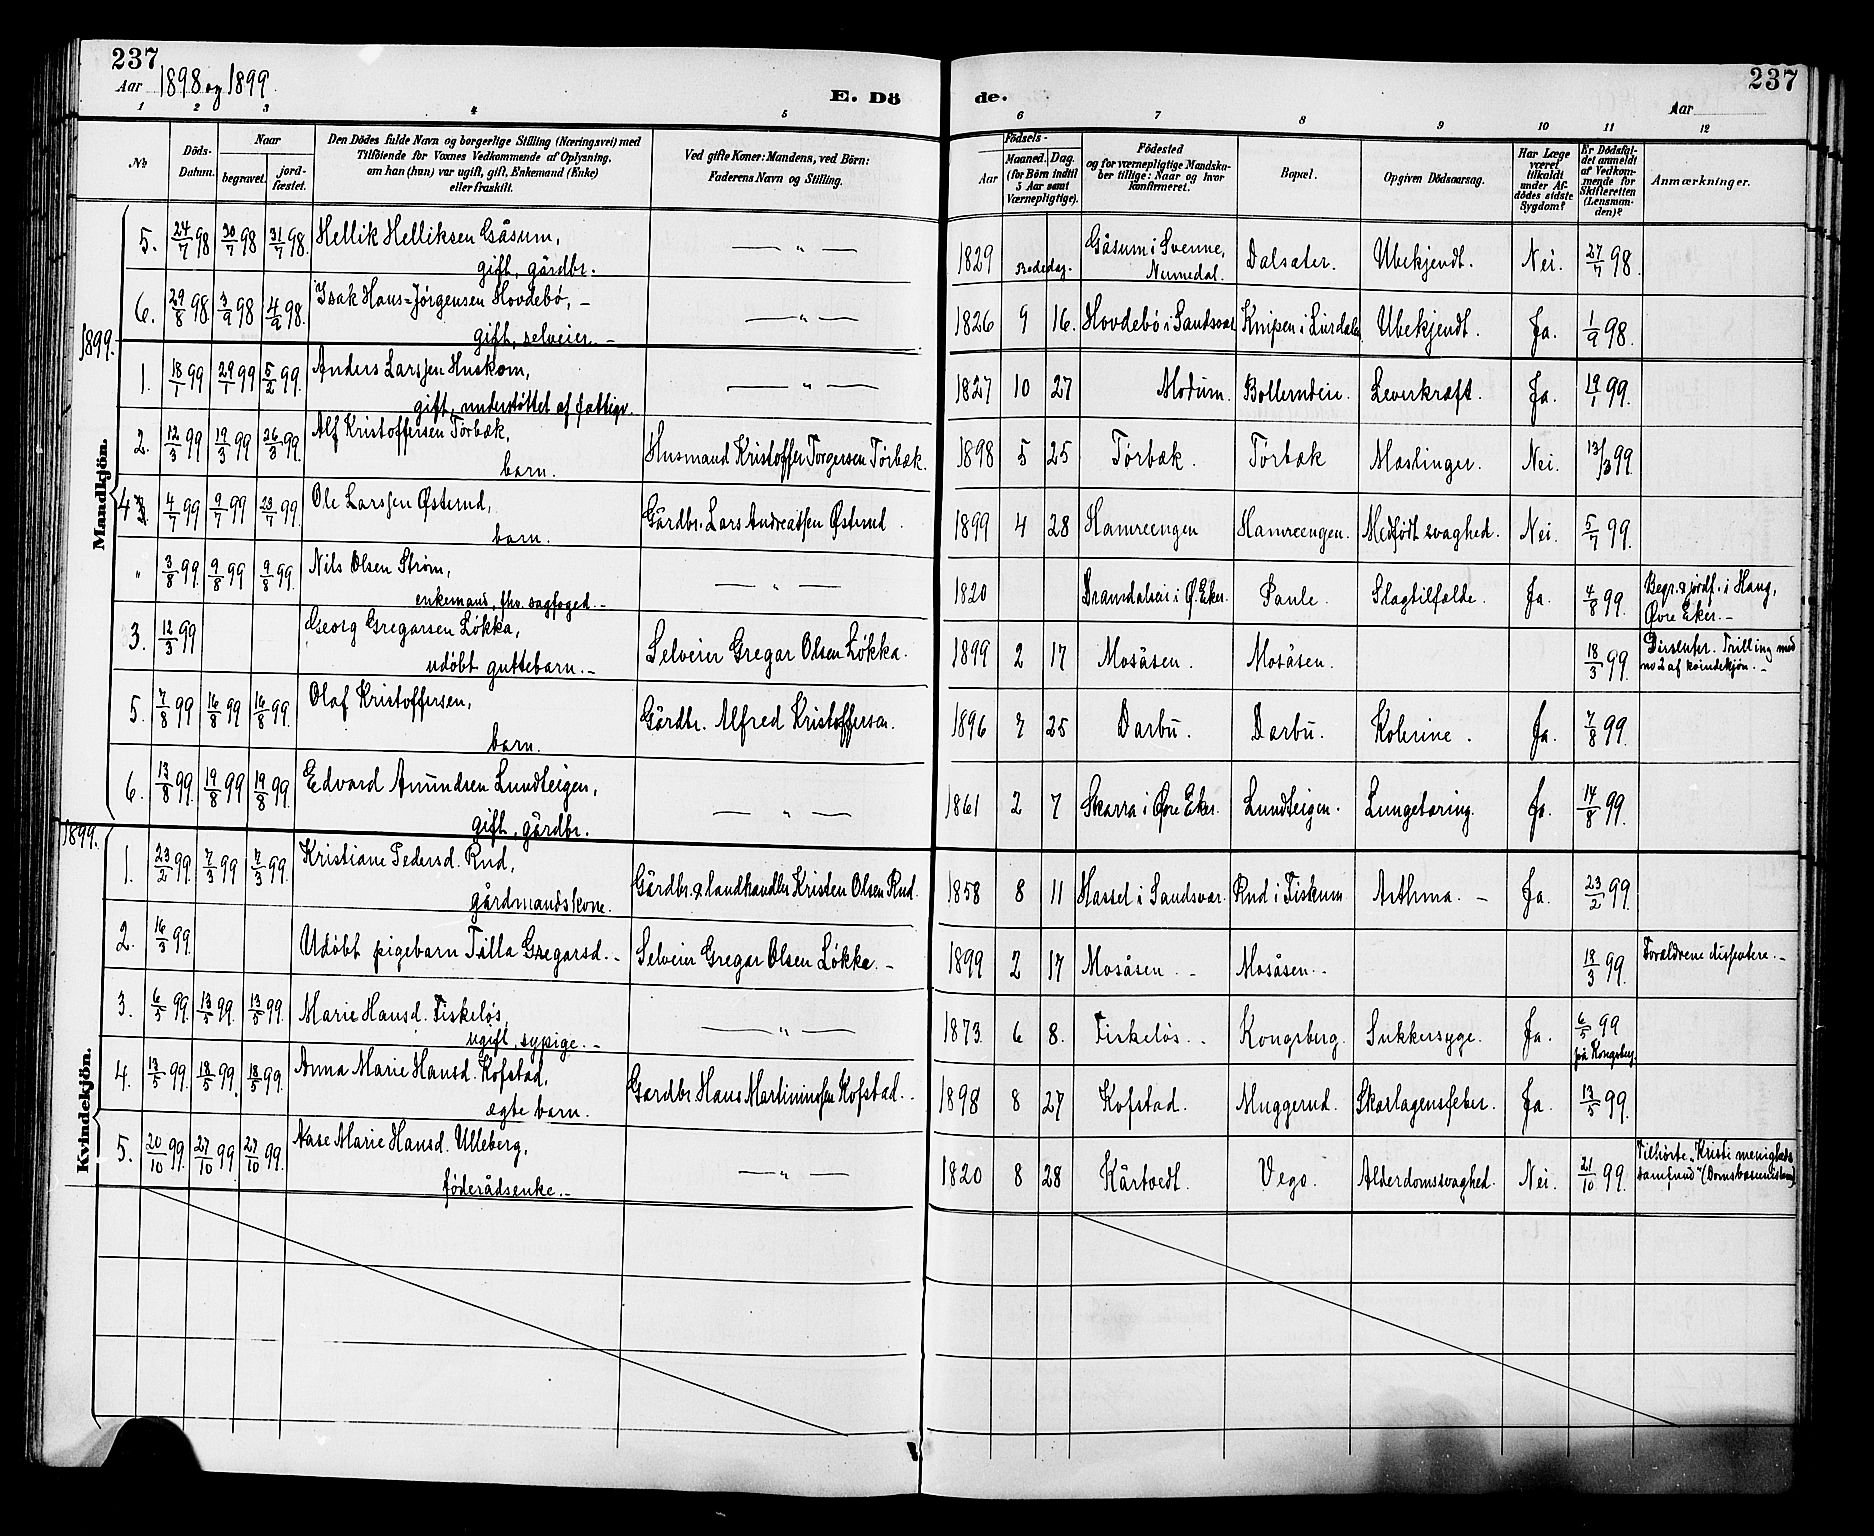 237
Aar 1898 og 1899
E. Dö
1 2 3 4 5
№
Döds-Datum.
Naar
begravet.
jord-fæstet.
Den Dödes fulde Navn og borgerlige Stilling (Næringsvei) med
Tilföiende for Voxnes Vedkommende af Oplysning,
om han (hun) var ugift, gift, Enkemand (Enke)
eller fraskilt.
Ved gifte Koner: Mandens, ved Börn:
Faderens Navn og Stilling.
Mandkjön.
5. 24/7 98 30/7 98 31/7 98. Hellik Helliksen Gåsum, — „ —
gift, gårdbr.
6. 29/8 98 3/9 98 4/9 98. Isak Hans-Jörgensen Hovdebö, — — „ —
gift, selveier. —
1899.
1. 18/1 99 29/1 99 5/2 99. Anders Larssen Huskom, — „ —
gift, understöttet af fattigv.
2. 12/3 99 19/3 99 26/3 99. Alf Kristoffersen Törbæk, Husmand Kristoffer Torgersen Törbæk.
barn.
4 3. 4/7 99 9/7 99 23/7 99. Ole Larssen Østerud, Gårdbr. Lars Andreassen Østerud.
barn.
„ 3/8 99. 9/8 99 9/8 99 Nils Olsen Strøm, — „ —
enkemand, fhv. sagfoged. —
3. 12/3 99 Georg Gregarsen Løkka, Selveier Gregar Olsen Løkka.
udöbt guttebarn. —
5. 7/8 99 16/8 99 16/8 99. Olaf Kristoffersen, Gårdbr. Alfred Kristoffersen.
barn.
6. 13/8 99. 19/8 99 19/8 99. Edvard Amundsen Lundteigen, — „ —
gift, gårdbr.
1899.
Kvindekjön.
1. 23/2 99. 7/3 99 7/3 99. Kristiane Pedersd. Rud, Gårdbr. & landhandler Kristen Olsen Rud.
gårdmandskone.
2. 16/3 99. Udöbt pigebarn Tilla Gregarsd. — Selveier Gregar Olsen Løkka. —
3. 6/5 99. 13/5 99. 13/5 99. Marie Hansd. Fiskeløs, — „ —
ugift, sypige. —
4. 13/5 99. 18/5 99. 18/5 99. Anna Marie Hansd. Kofstad, Gardbr. Hans Martiniussen Kofstad.
ægte barn.
5. 20/10 99. 27/10 99 27/10 99. Marie Hansd. Ulleberg, — „ —
føderådsenke. —
237
de.
Aar
6 7 8 9 10 11 12
Födsels-
Aar
Maaned. Dag.
(for Börn indtil
5 Aar samt
Værnepligtige).
Födested
og for værnepligtige Mandska-
ber tillige: Naar og hvor
konfirmeret.
Bopæl.
Opgiven Dödsaarsag.
Har Læge
været
tilkaldt
under Af-
dödes sidste
Sygdom?
Er Dödsfal-
det anmeldt
af Vedkom-
mende for
Skifteretten
(Lensman-
den)?
Anmærkninger.
1829 Bededag. Gåsum i Svenne, Numedal. Dalsæter. Ubekjendt. Nei. 27/7 98.
1826 9 16. Hovdebö i Sandsvær Knipen i Lurdalen Ubekjendt. Ja. 1/9 98.
1827 10 27 Modum. Leverkræft. Ja. 19/1 99.
1898 5 25 Törbæk. Törbæk Meslinger. Nei. 13/3 99.
1899 4 28 Hamreengen Hamreengen. Medfödt svaghed. Nei. 5/7 99.
1820 i Ø. Eker. Slagtilfælde. Ja. 4/8 99. Begr. & jordf. i Haug,
Øvre Eker. —
1899 2 17 Mosåsen. Mosåsen. 18/3 99. Dissenter. Trilling med
no 2 af kvindekjön. —
1896 7 25 Darbu. Darbu. Kolerine. Ja. 7/8 99.
1861 2 7 Skarra i Øvre Eker. Lundteigen. Lungetæring. Ja. 14/8 99.
1858 8 11 Hassel i Sandsvær. Rud i Fiskum Asthma. — Ja. 23/2 99.
1899 2 17 Mosåsen. — Mosåsen. — 18/3 99. Forældrene dissentere. —
1873. 6 8. Fiskeløs. — Kongsberg. Sukkersyge. Ja. 6/5 99
på Kongsberg.
1898 8 27 Kofstad. Muggerud. Skarlagensfeber. Ja. 13/5 99.
1820 8 28 Kårtvedt. Vego. Alderdomssvaghed. Nei. 21/10 99. Tilhörte „Kristi menigheds
samfund"